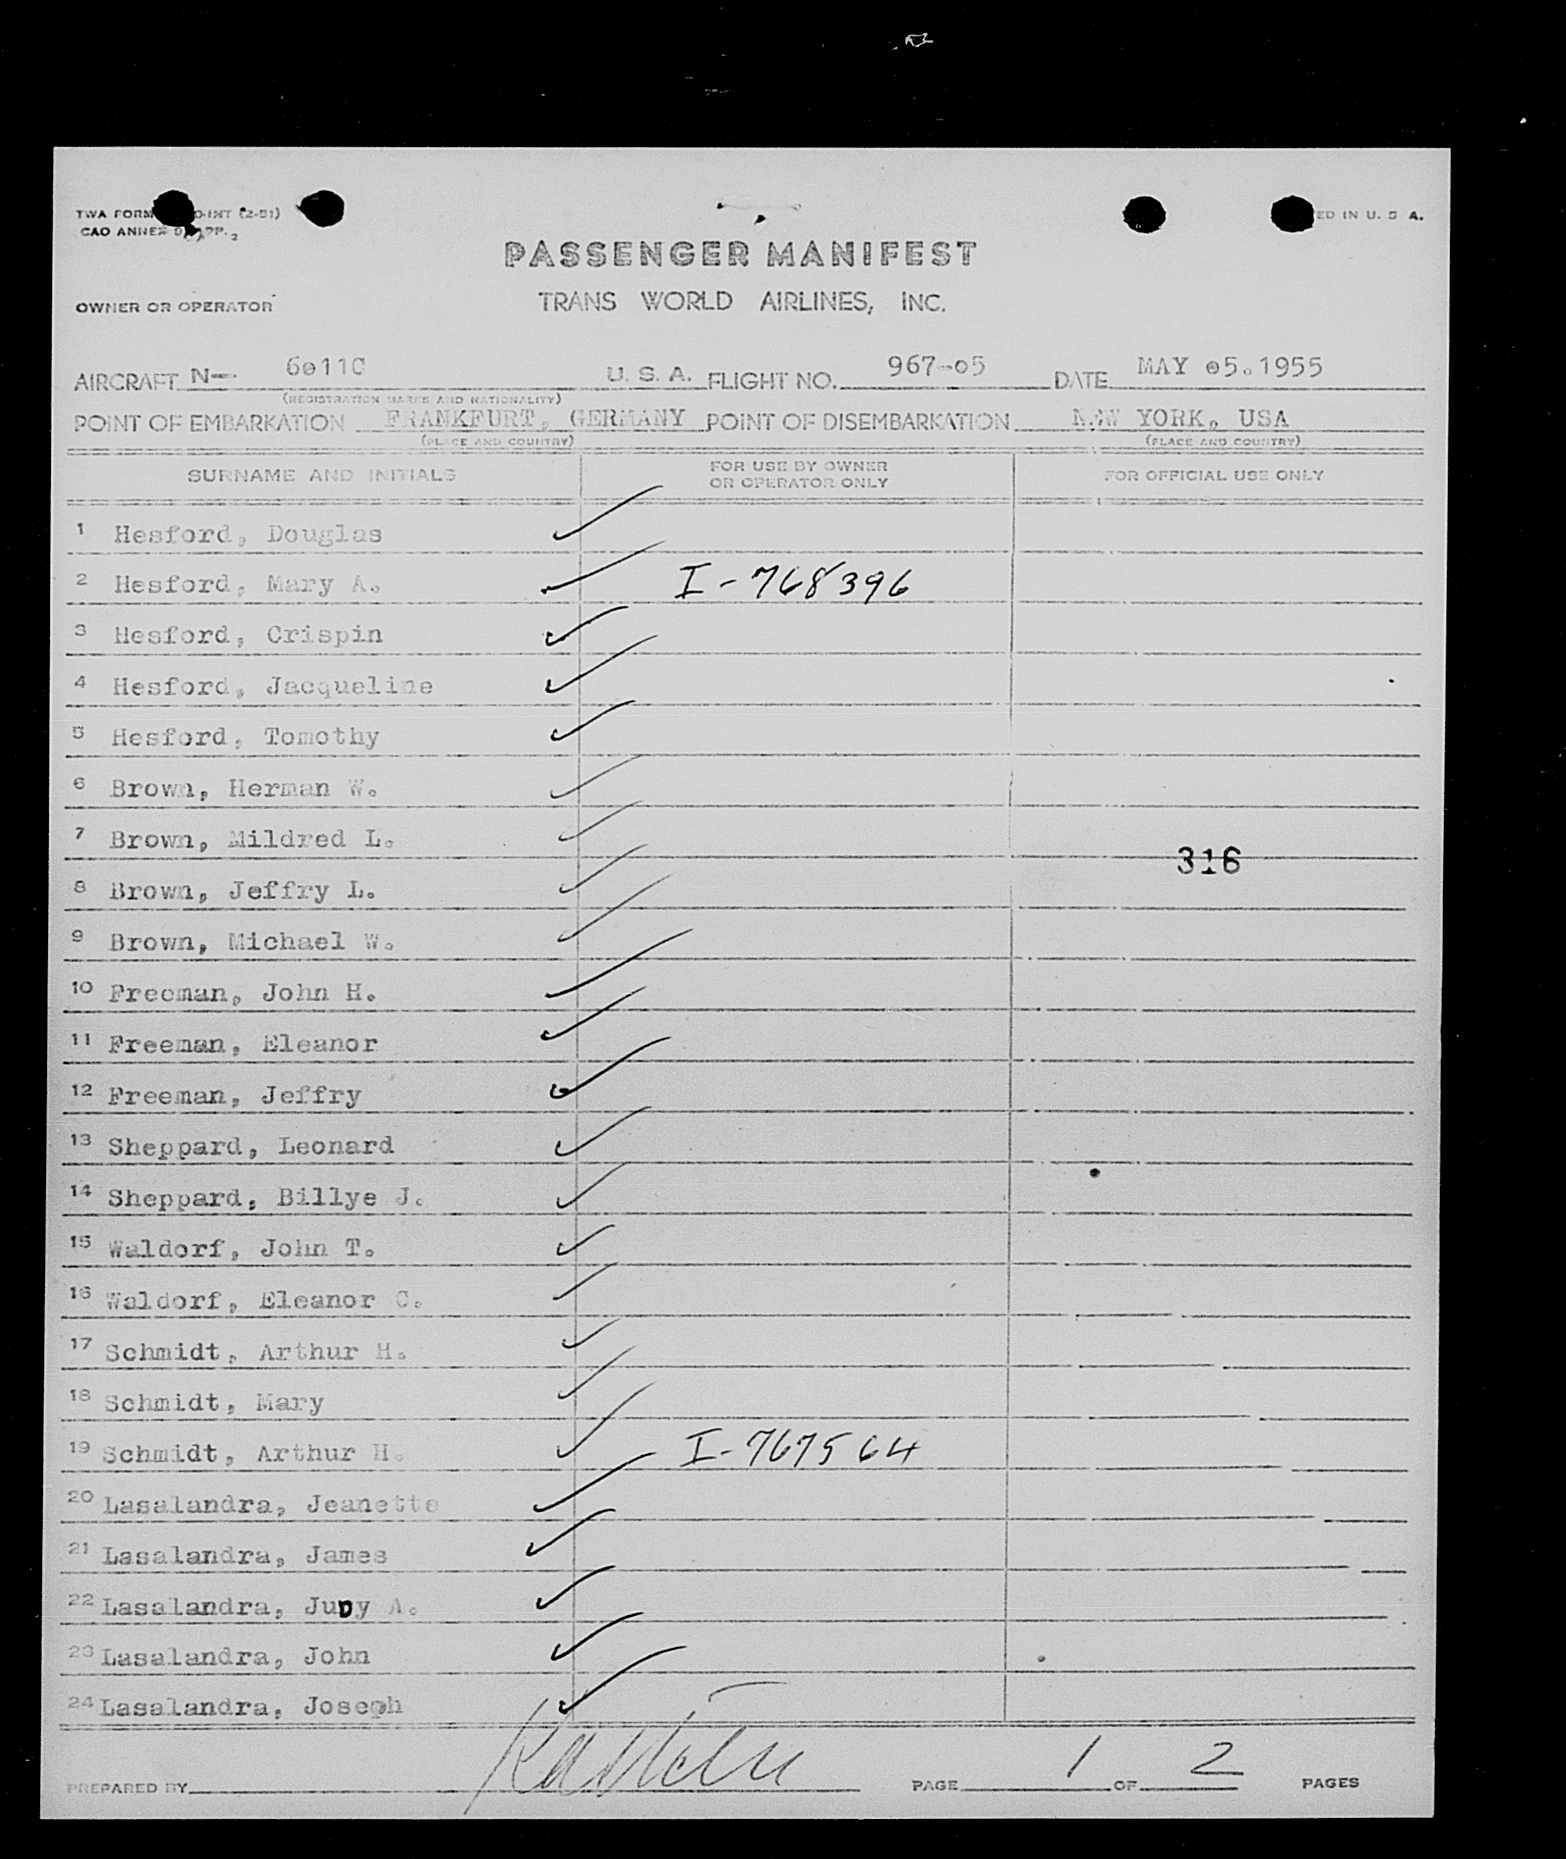 TWA FORM
CAO ANNEX 9 APP. 2
ED IN U. S. A.
PASSENGER MANIFEST
OWNER OR OPERATOR TRANS WORLD AIRLINES, INC.
AIRCRAFT N— 6011C U. S. A. FLIGHT NO. 967-05 DATE MAY 05.1955
(REGISTRATION MARKS AND NATIONALITY)
POINT OF EMBARKATION FRANKFURT, GERMANY POINT OF DISEMBARKATION NEW YORK, USA
(PLACE AND COUNTRY) (PLACE AND COUNTRY)
SURNAME AND INITIALS FOR USE BY OWNER OR OPERATOR ONLY FOR OFFICIAL USE ONLY
1 Hesford, Douglas
2 Hesford, Mary A. I-768396
3 Hesford, Crispin
4 Hesford, Jacqueline
5 Hesford, Tomothy
6 Brown, Herman W.
7 Brown, Mildred L.
316
8 Brown, Jeffry L.
9 Brown, Michael W.
10 Freeman, John H.
11 Freeman, Eleanor
12 Freeman, Jeffry
13 Sheppard, Leonard
14 Sheppard, Billye J.
15 Waldorf, John T.
16 Waldorf, Eleanor C.
17 Schmidt, Arthur H.
18 Schmidt, Mary
19 Schmidt, Arthur H. I-767564
20 Lasalandra, Jeanette
21 Lasalandra, James
22 Lasalandra, JuDy A.
23 Lasalandra, John
24 Lasalandra, Joseph
PREPARED BY PAGE 1 OF 2 PAGES